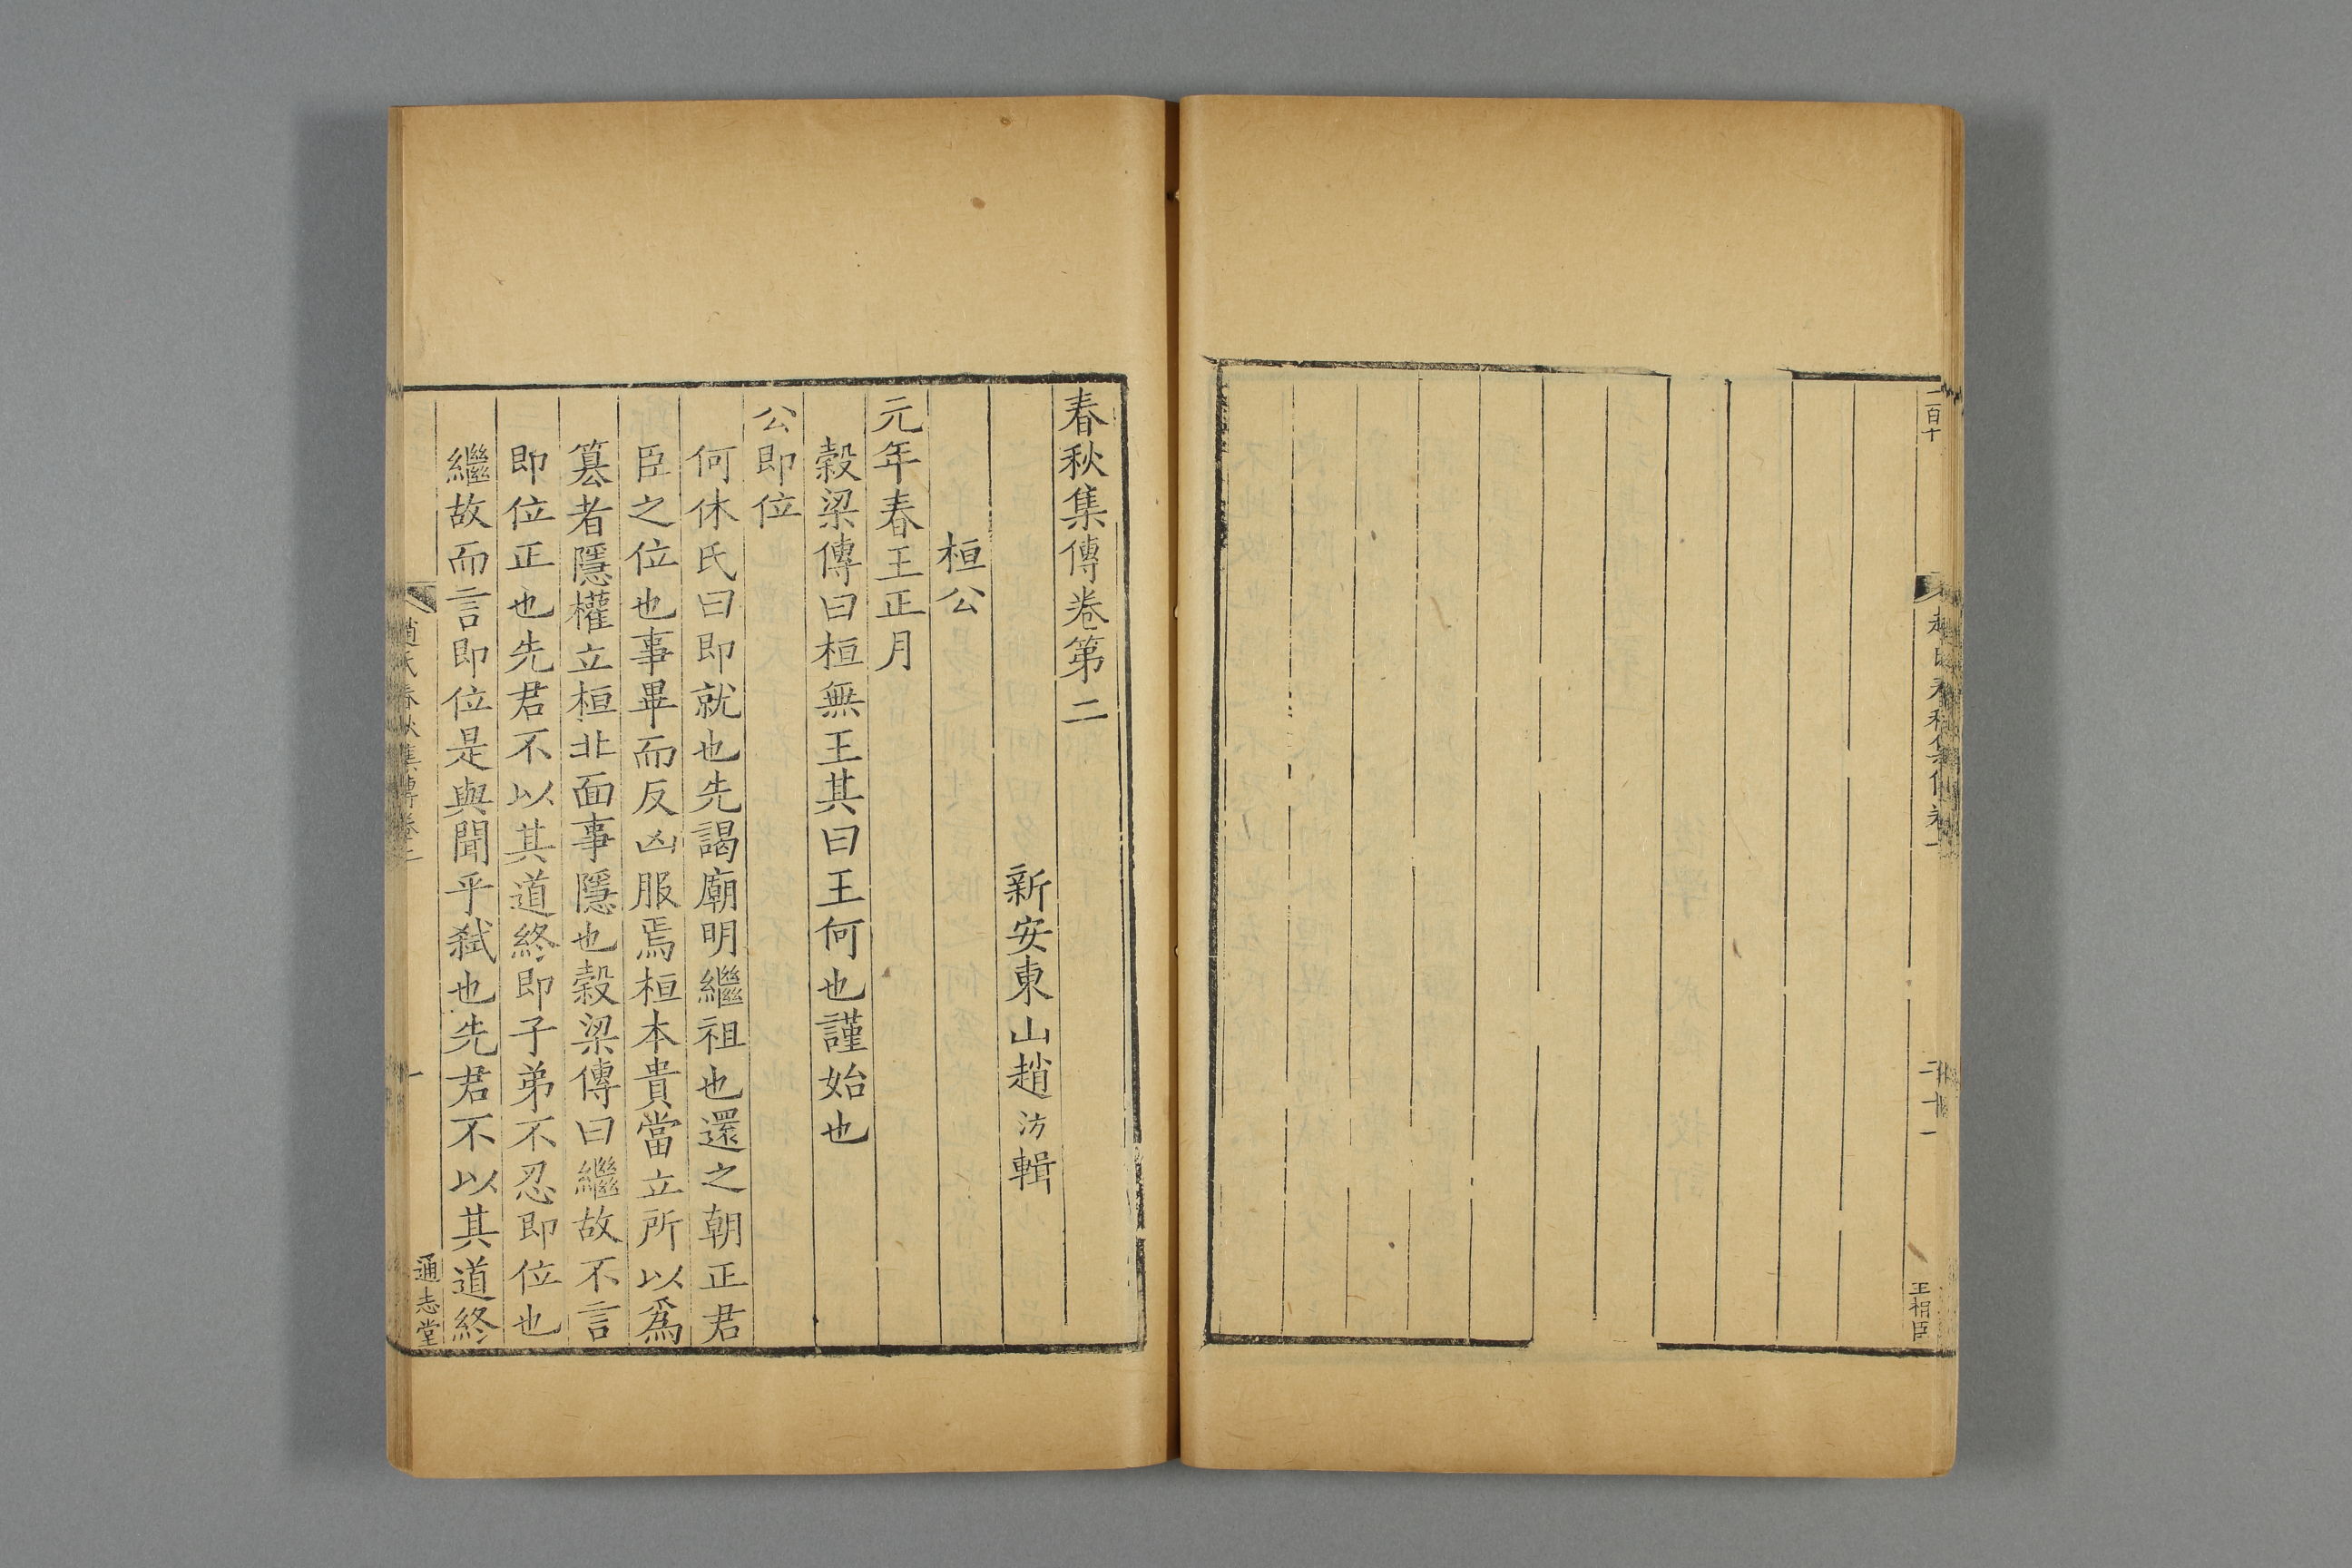 二百十
王相臣
春秋集傳卷第二
新安東山趙汸輯
桓公
元年春王正月
穀梁傳曰桓無王其曰王何也謹始也
公即位
何休氏曰即就也先謁廟明繼祖也還之朝正君
臣之位也事畢而反凶服焉桓本貴當立所以爲
篡者隱權立桓北面事隱也穀梁傳曰繼故不言
即位正也先君不以其道終即子弟不忍即位也
繼故而言即位是與聞乎弒也先君不以其道終
趙氏春秋集傳卷二
一
通志堂